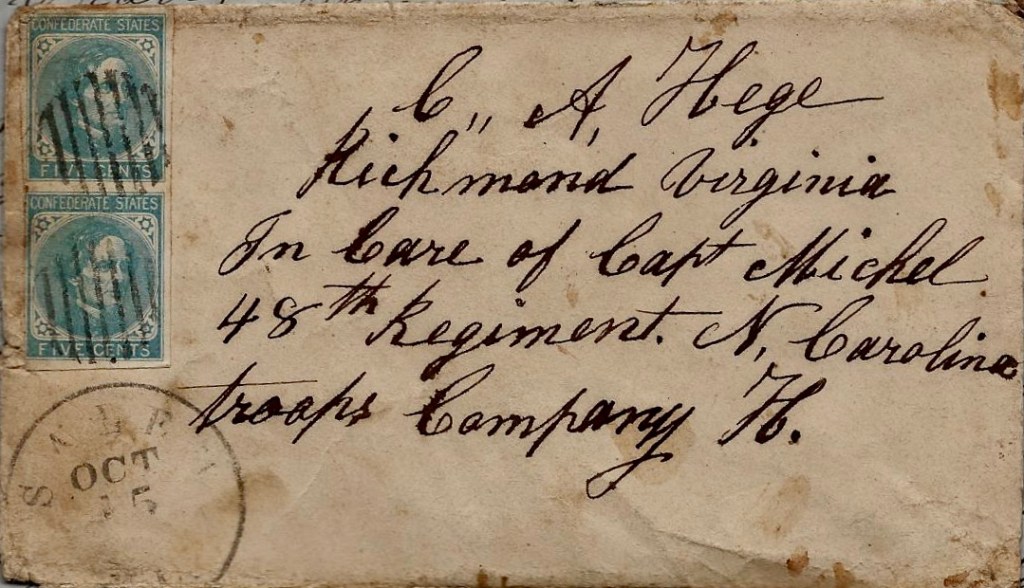 CONFEDERATE STATES
FIVE CENTS
CONFEDERATE STATES
FIVE CENTS
C,, A, Hege
Richmond Virginia
In Care of Capt Michel
48th Regiment. N, Carolina
troops Company H.
SALEM
OCT
15